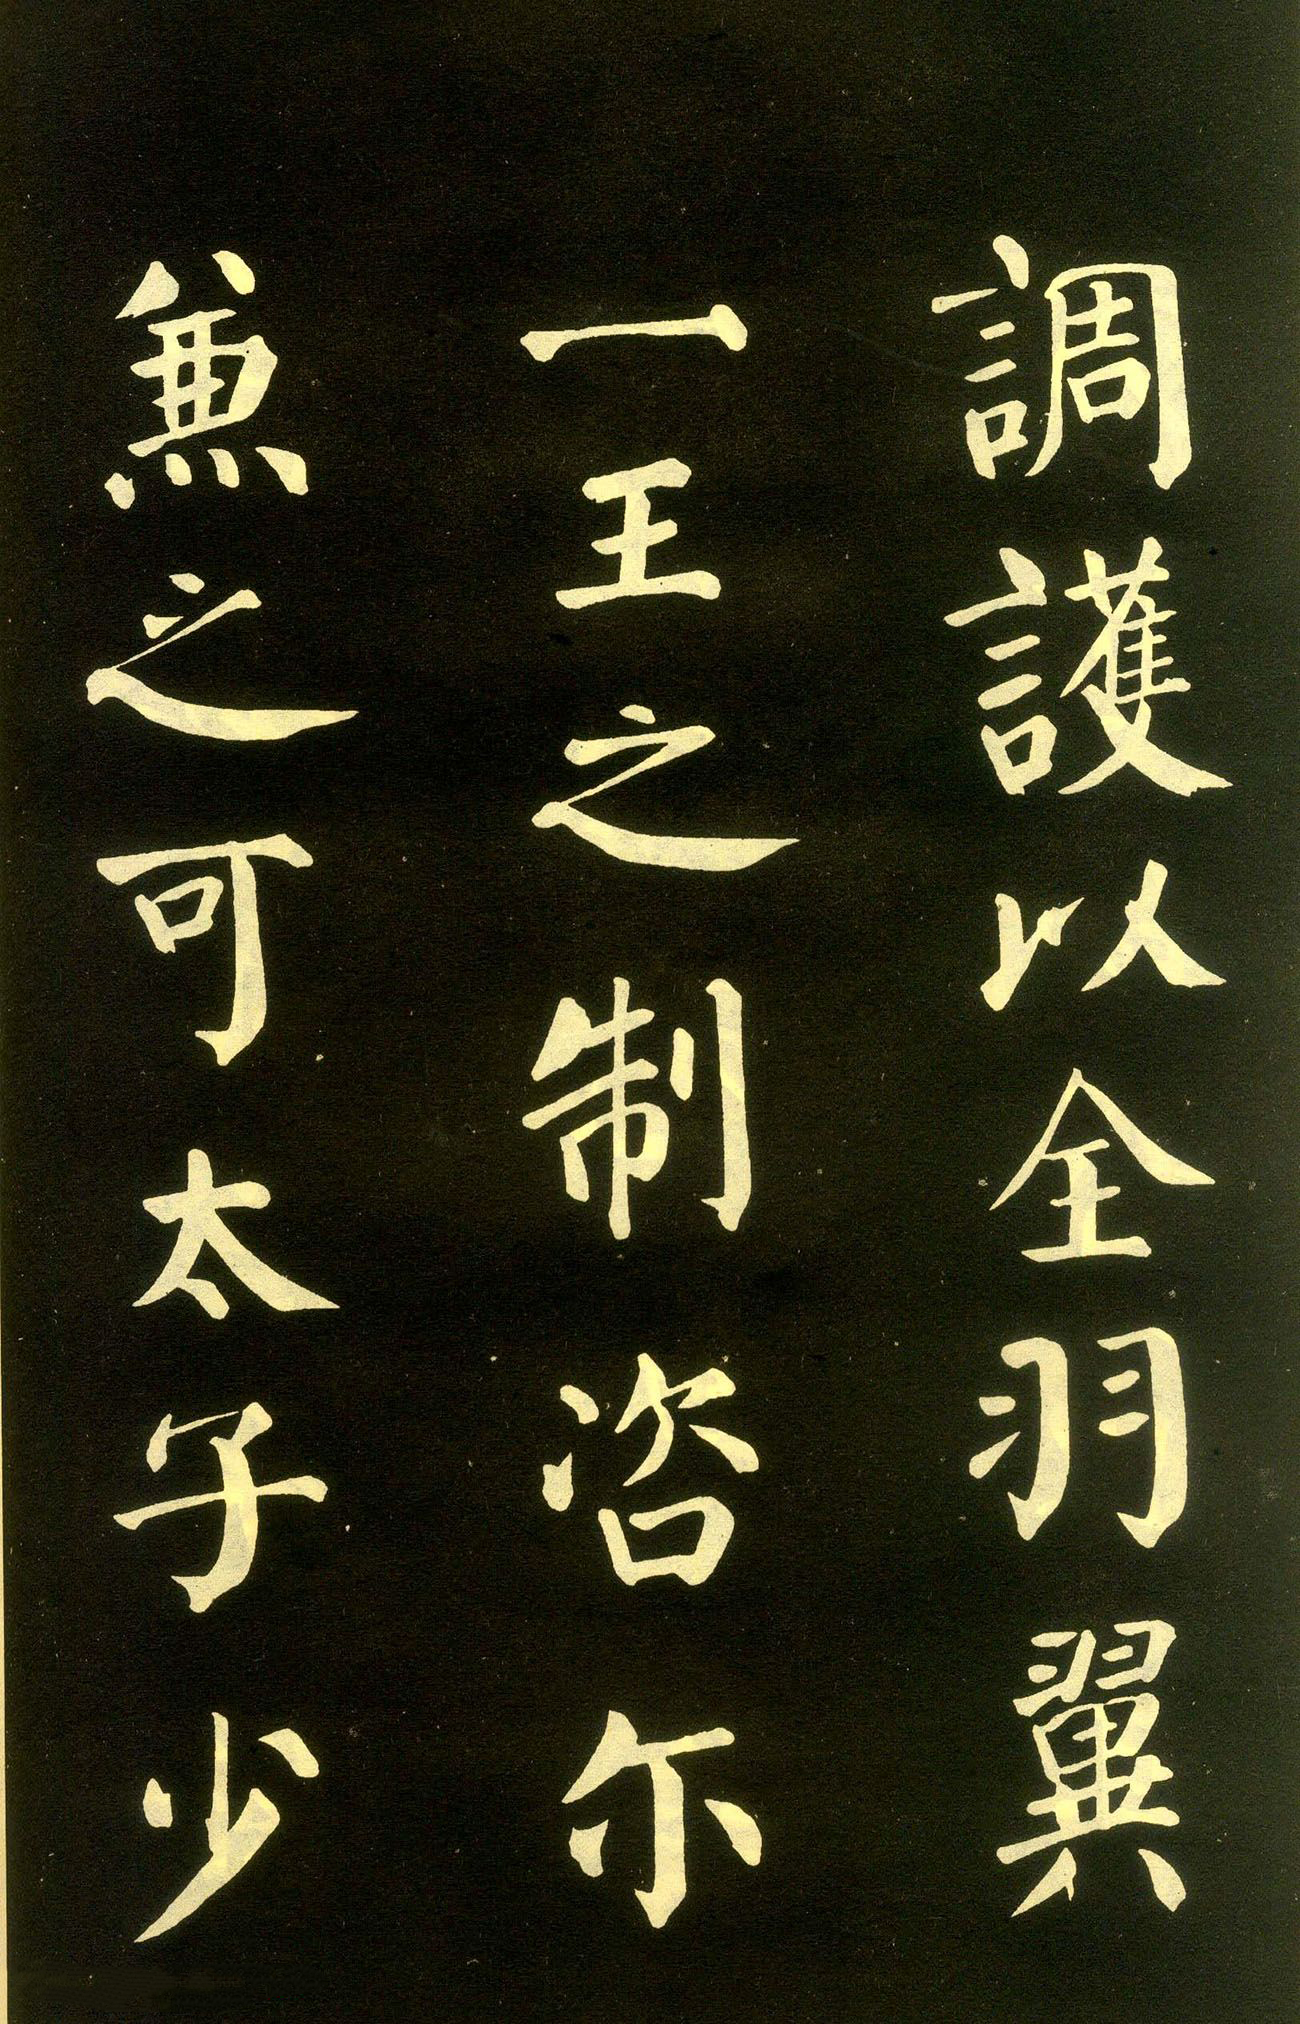 調護以全羽翼
一王之制咨尓
兼之可太子少